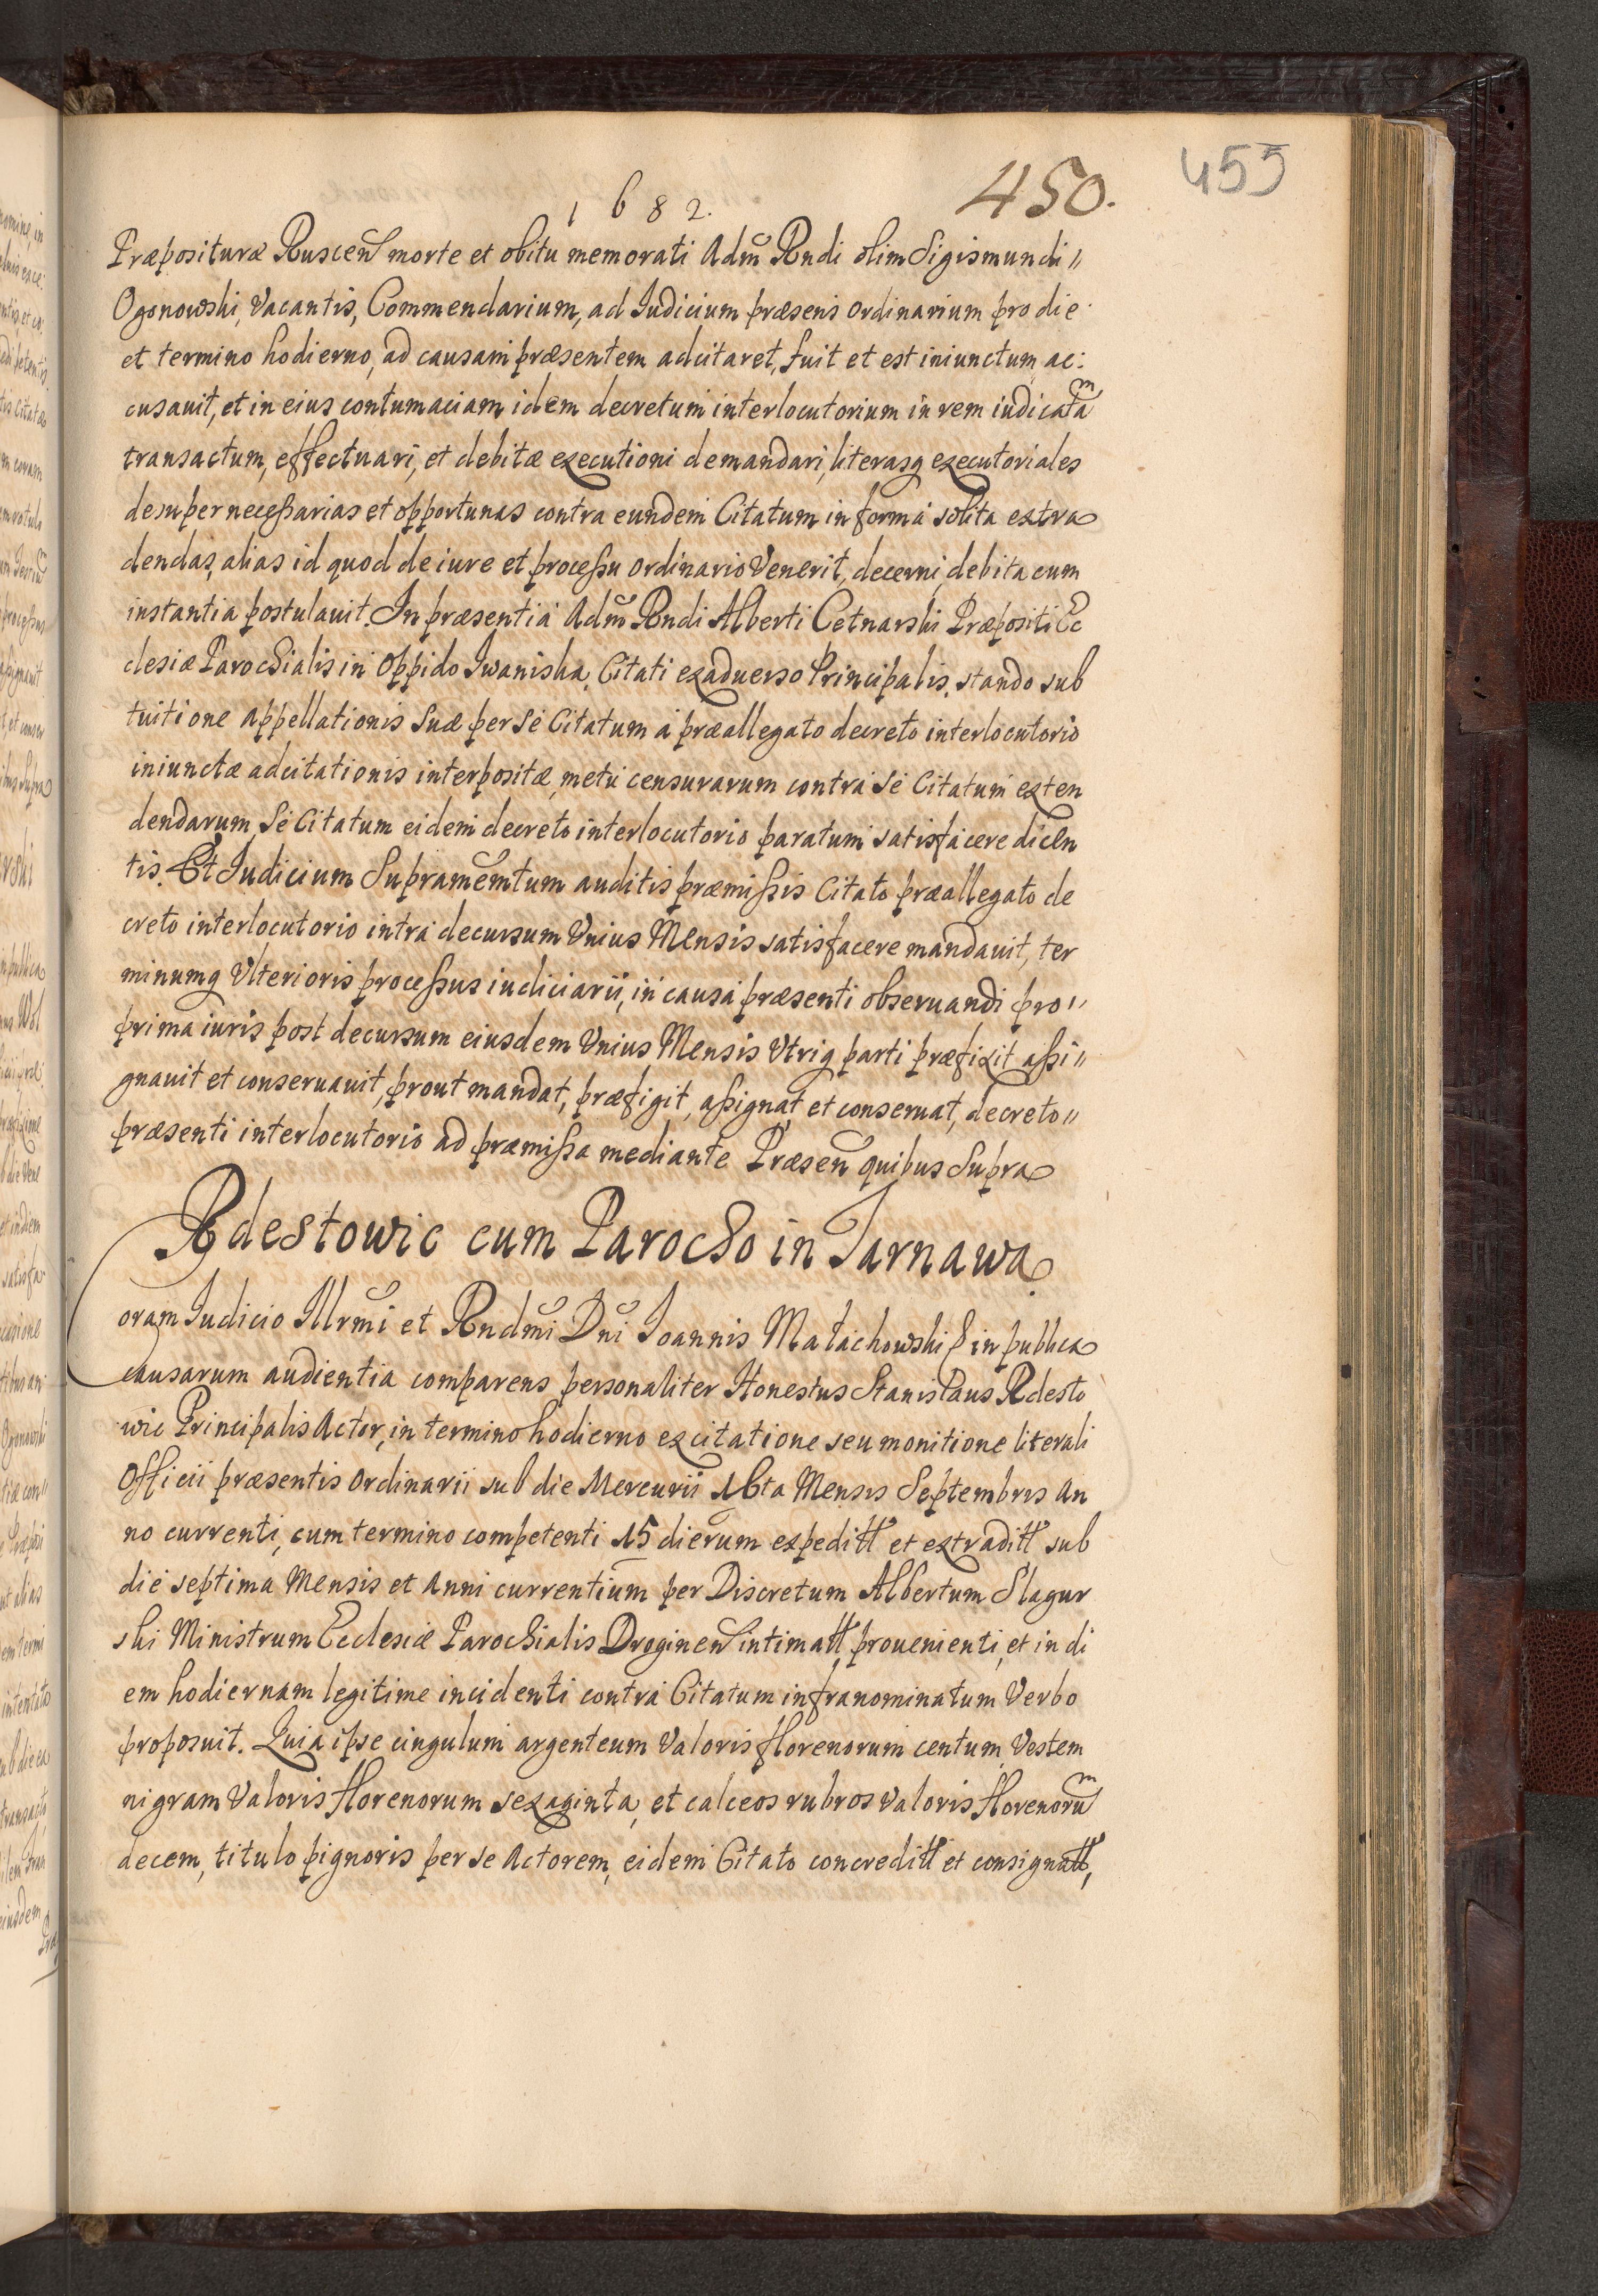 1682.
450.
455
Præpositura Ruscen̄ morte et obitu memorati Adm̃ Rndi olim Sigismundi"
Ogonowski, Vacantis, Commendarium, ad Iudicium præsens ordinarium pro die
et termino hodierno, ad causam præsentem adcitaret, fuit et est iniunctum, ac:
cusauit, et in eius contumaciam idem decretum interlocutorium in rem iudicatã
transactum, effectuari, et debitæ executioni demandari, literasq executoriales
desuper necessarias et opportunas contra eundem Citatum in forma solita extra
dendas, alias id quod de iure et processu ordinario Venerit, decerni debita cum
instantia postulauit. In præsentia Adm̃ Rndi Alberti Cetnarski Præpositi Ec
clesiæ Parochialis in Oppido Iwaniska, Citati exaduerso Principalis, stando sub
tuitione Appellationis suæ per sé Citatum á præallegato decreto interlocutorio
iniunctæ adcitationis interpositæ, metu censurarum contra sé Citatum exten
dendarum, sé Citatum eidem decreto interlocutorio paratum satisfacere dicen
tis. Et Iudicium Supramem̃tum auditis præmissis Citato præallegato de
creto interlocutorio intra decursum Vnius Mensis satisfacere mandauit, ter
minumq Vlterioris processus iudiciarii, in causa præsenti obseruandi pro"
prima iuris post decursum eiusdem Vnius Mensis Vtriq parti præfixit assi"
gnauit et conseruauit, prout mandat, præfigit, assignat et conseruat, decreto"
præsenti interlocutorio ad præmissa mediante Præsen̄ quibus Supra
Rdestowic cum Parocho in Tarnawa
Coram Iudicio Illrm̃i et Rndm̃i Dñi Ioannis Małachowski & in publica
causarum audientia comparens personaliter Honestus Stanislaus Rdesto
wic Principalis Actor, in termino hodierno ex citatione seu monitione literali
Officii præsentis Ordinarii sub die Mercurii 16ta Mensis Septembris An
no currenti, cum termino competenti 15 dierum expeditt et extraditt sub
die septima Mensis et Anni currentium per Discretum Albertum Slagur
ski Ministrum Ecclesiæ Parochialis Droginen̄ intimatt, prouenienti, et in di
em hodiernam legitime incidenti contra Citatum infranominatum Verbo
proposuit. Quia ipse cingulum argenteum Valoris florenorum centum, Vestem
nigram Valoris florenorum sexaginta, et calceos rubros Valoris florenorũ
decem, titulo pignoris per se Actorem, eidem Citato concreditt et consignatt,